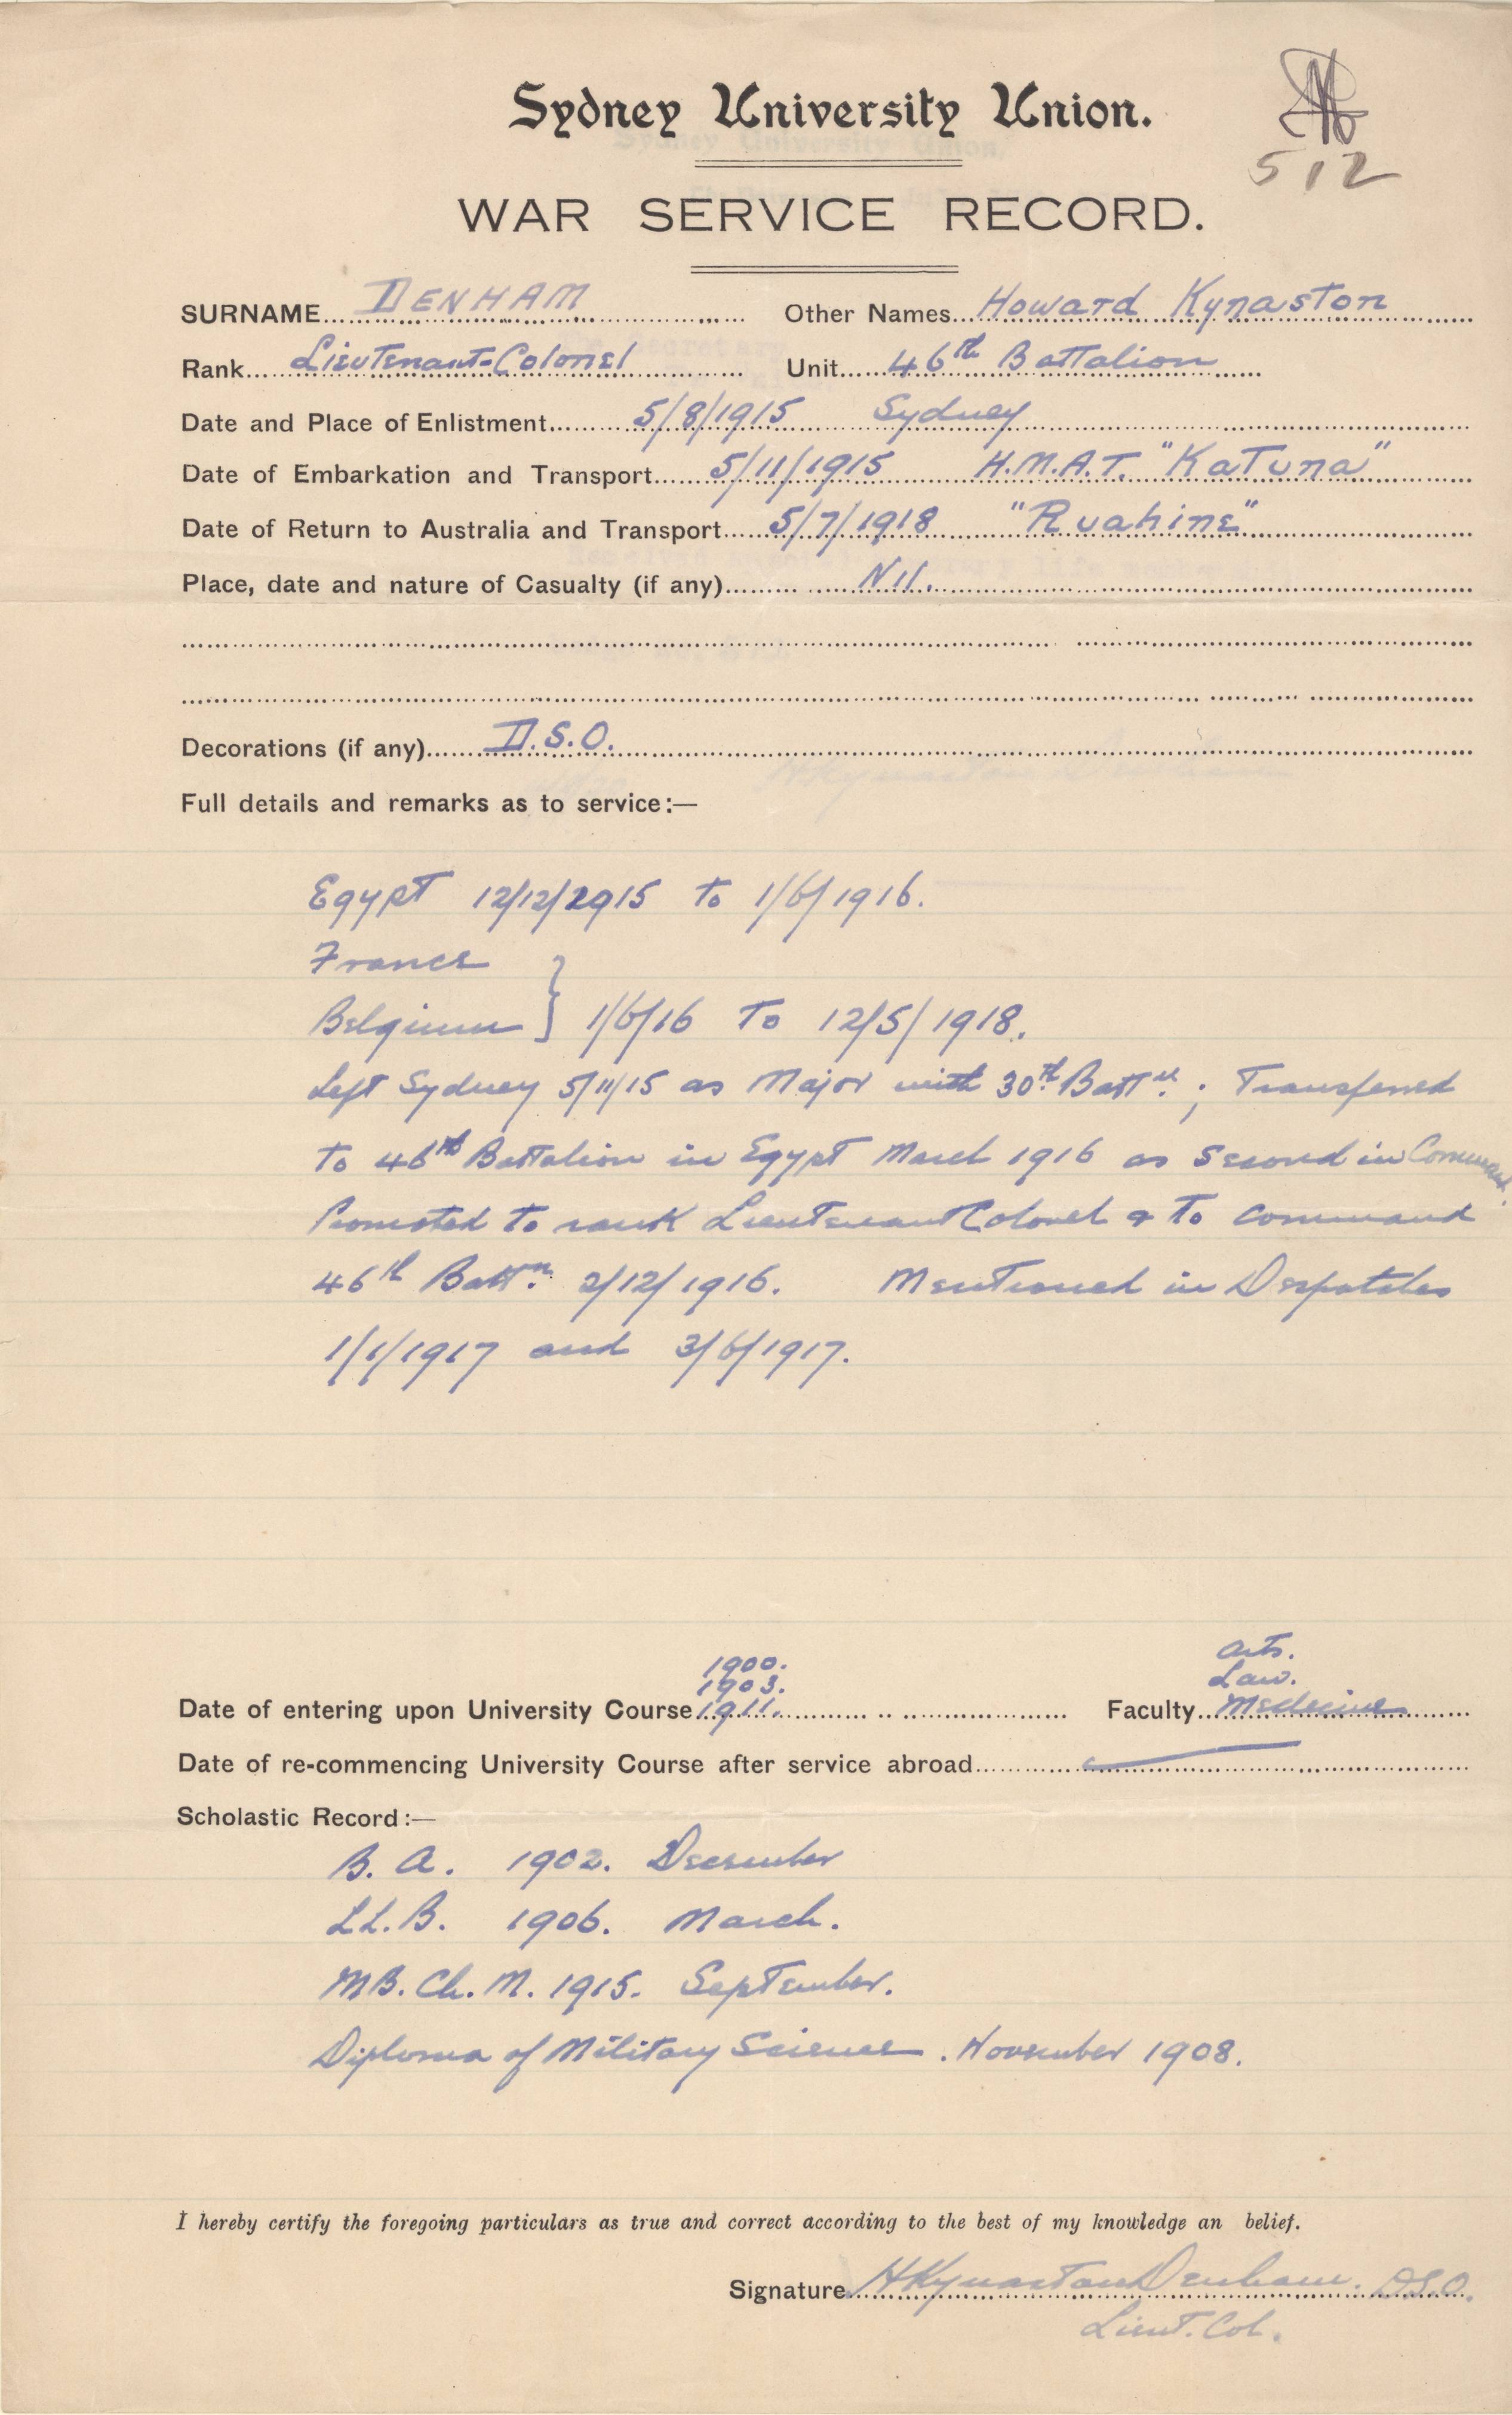 Sydney University Union.
512
WAR SERVICE RECORD.
SURNAME DENHAM Other Names Howard Kynaston
Rank Lieutenant-Colonel Unit 46th Battalion
Date and Place of Enlistment 5/8/1915 Sydney
Date of Embarkation and Transport 5/11/1915 H.M.A.T. "Katuna"
Date of Return to Australia and Transport 5/7/1918 "Ruahine"
Place, date and nature of Casualty (if any) Nil.
Decorations (if any) D.S.O.
Full details and remarks as to service:—
Egypt 12/12/1915 to 1/6/1916.
France
Belgium } 1/6/16 To 12/5/1918.
Left Sydney 5/11/15 as Major with 30th Battn.; Transferred
to 46th Battalion in Egypt March 1916 as Second in Command.
Promoted to rank Lieutenant Colonel & to command
46th Battn. 2/12/1916. Mentioned in Despatches
1/1/1917 and 3/6/1917.
1900. Arts.
1903. Law.
Date of entering upon University Course 1911. Faculty Medicine
Date of re-commencing University Course after service abroad —
Scholastic Record:—
B.A. 1902. December
LL.B. 1906. March.
MB. Ch. M. 1915. September.
Diploma of Military Science. November 1908.
I hereby certify the foregoing particulars as true and correct according to the best of my knowledge an belief.
Signature HKynaston Denham. D.S.O.
Lieut. Col.